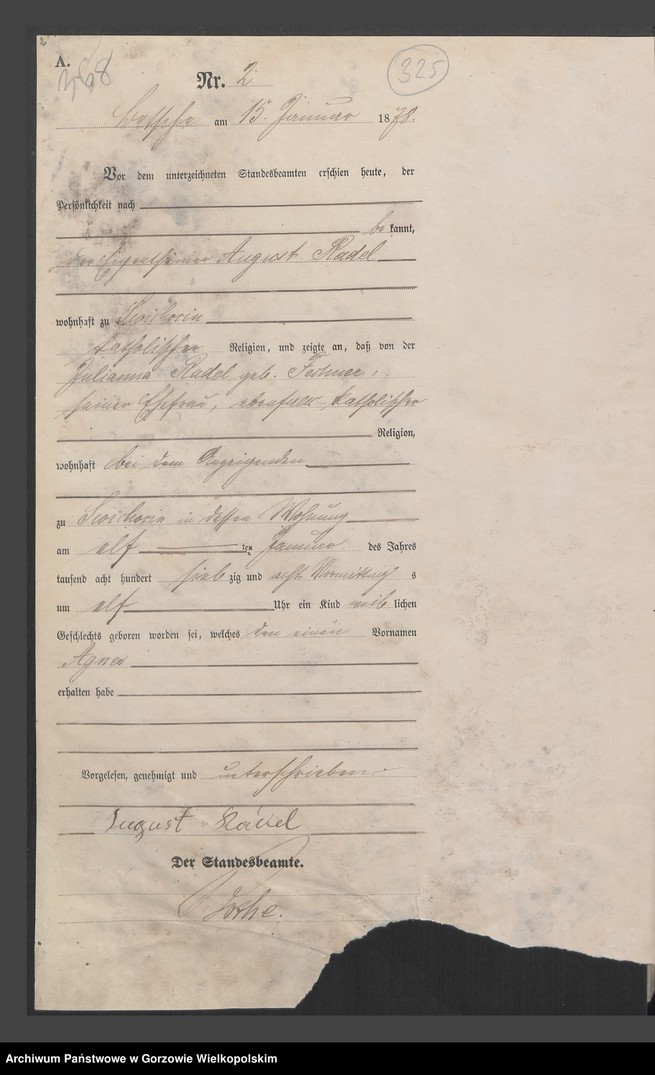 2
A.
368
325
Nr. 2
Betsche am 15. Januar 1878.
Vor dem unterzeichneten Standesbeamten erschien heute, der
Persönlichkeit nach
be kannt,
der Eigenthümer August Radel
wohnhaft zu
katholischer Religion, und zeigte an, daß von der
Julianna Radel geb. Fechner,
seiner Ehefrau, ebenfalls katholischer
Religion,
wohnhaft bei dem Anzeigenden
zu in dessen Wohnung
am elf ten Januar des Jahres
tausend acht hundert sieb zig und acht Vormittag s
um elf Uhr ein Kind weib lichen
Geschlechts geboren worden sei, welches den einen Vornamen
Agnes
erhalten habe
Vorgelesen, genehmigt und unterschrieben
August Radel
Der Standesbeamte.
Archiwum Państwowe w Gorzowie Wielkopolskim